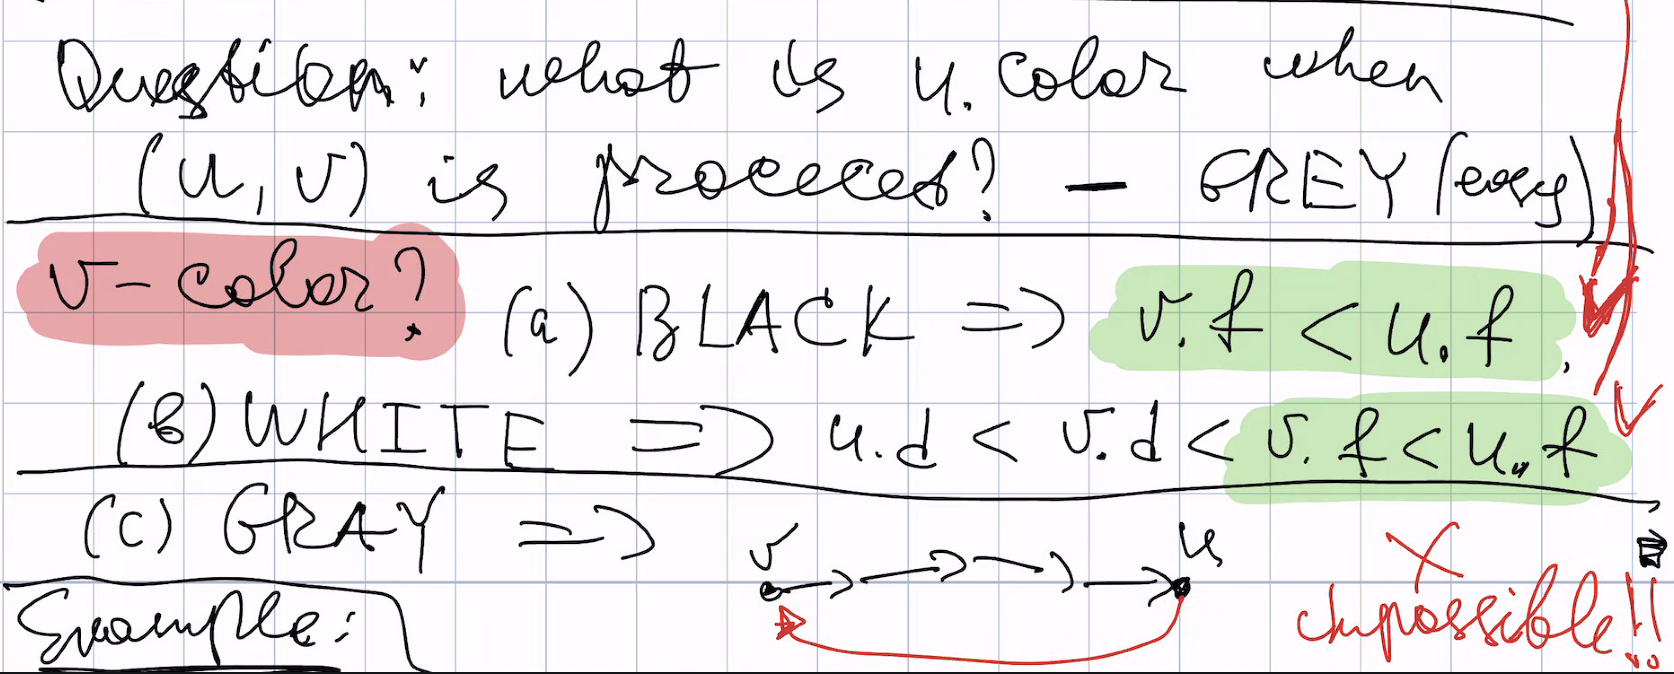 Question: what is u.color when
(u, v) is processed? — GREY (easy)
v-color? (a) BLACK => v.f < u.f,
(b) WHITE => u.d < v.d < v.f < u.f
(c) GRAY => v u
Impossible!!
Example: